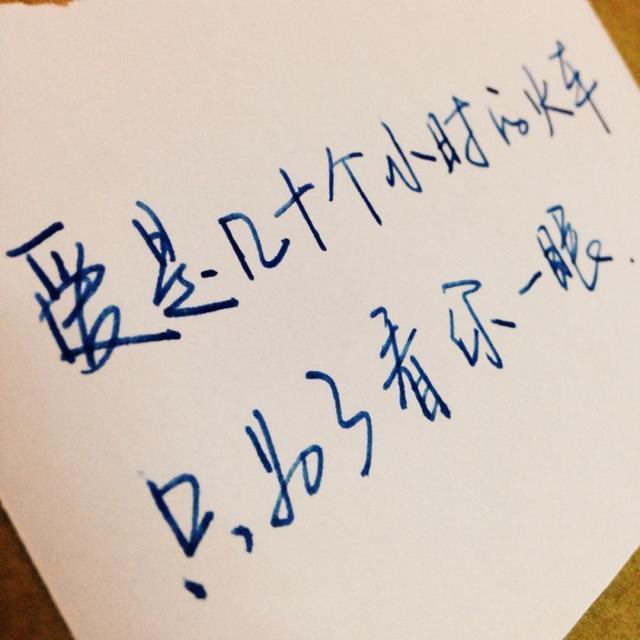 爱是几十个小时的火车
只为了看你一眼.